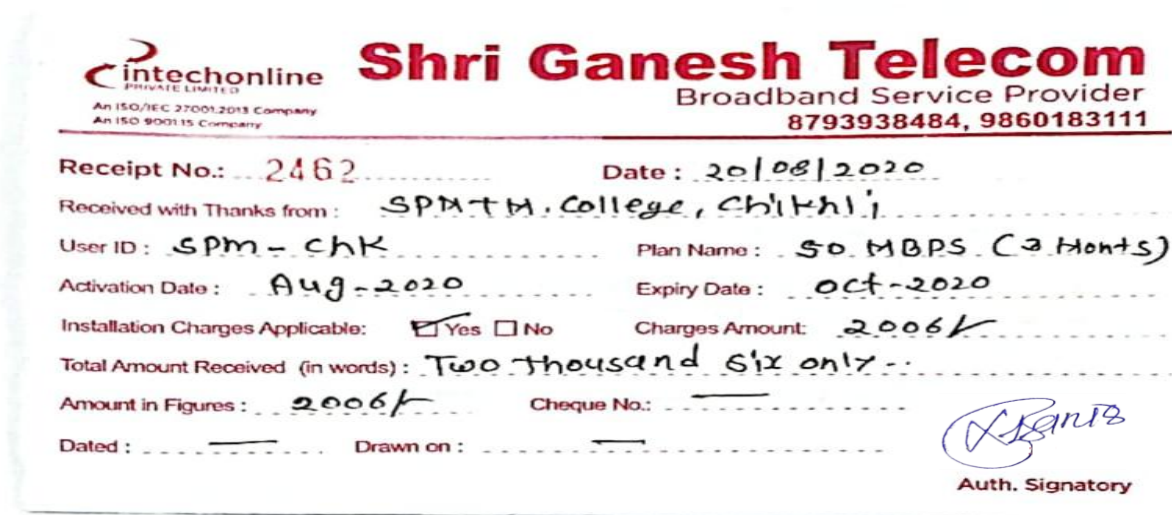 intechonline
PRIVATE LIMITED
An ISO/IEC 27001:2013 Company
An ISO 9001:15 Company
Shri Ganesh Telecom
Broadband Service Provider
8793938484, 9860183111
Receipt No.: 2462 Date : 20/08/2020
Received with Thanks from : SPMTM. College, Chikhli
User ID : SPM - ChK Plan Name : 50 MBPS (3 Monts)
Activation Date : Aug-2020 Expiry Date : Oct-2020
Installation Charges Applicable: Yes No Charges Amount: 2006/-
Total Amount Received (in words) : Two thousand Six only
Amount in Figures : 2006/- Cheque No.: —
Dated : — Drawn on : —
Auth. Signatory